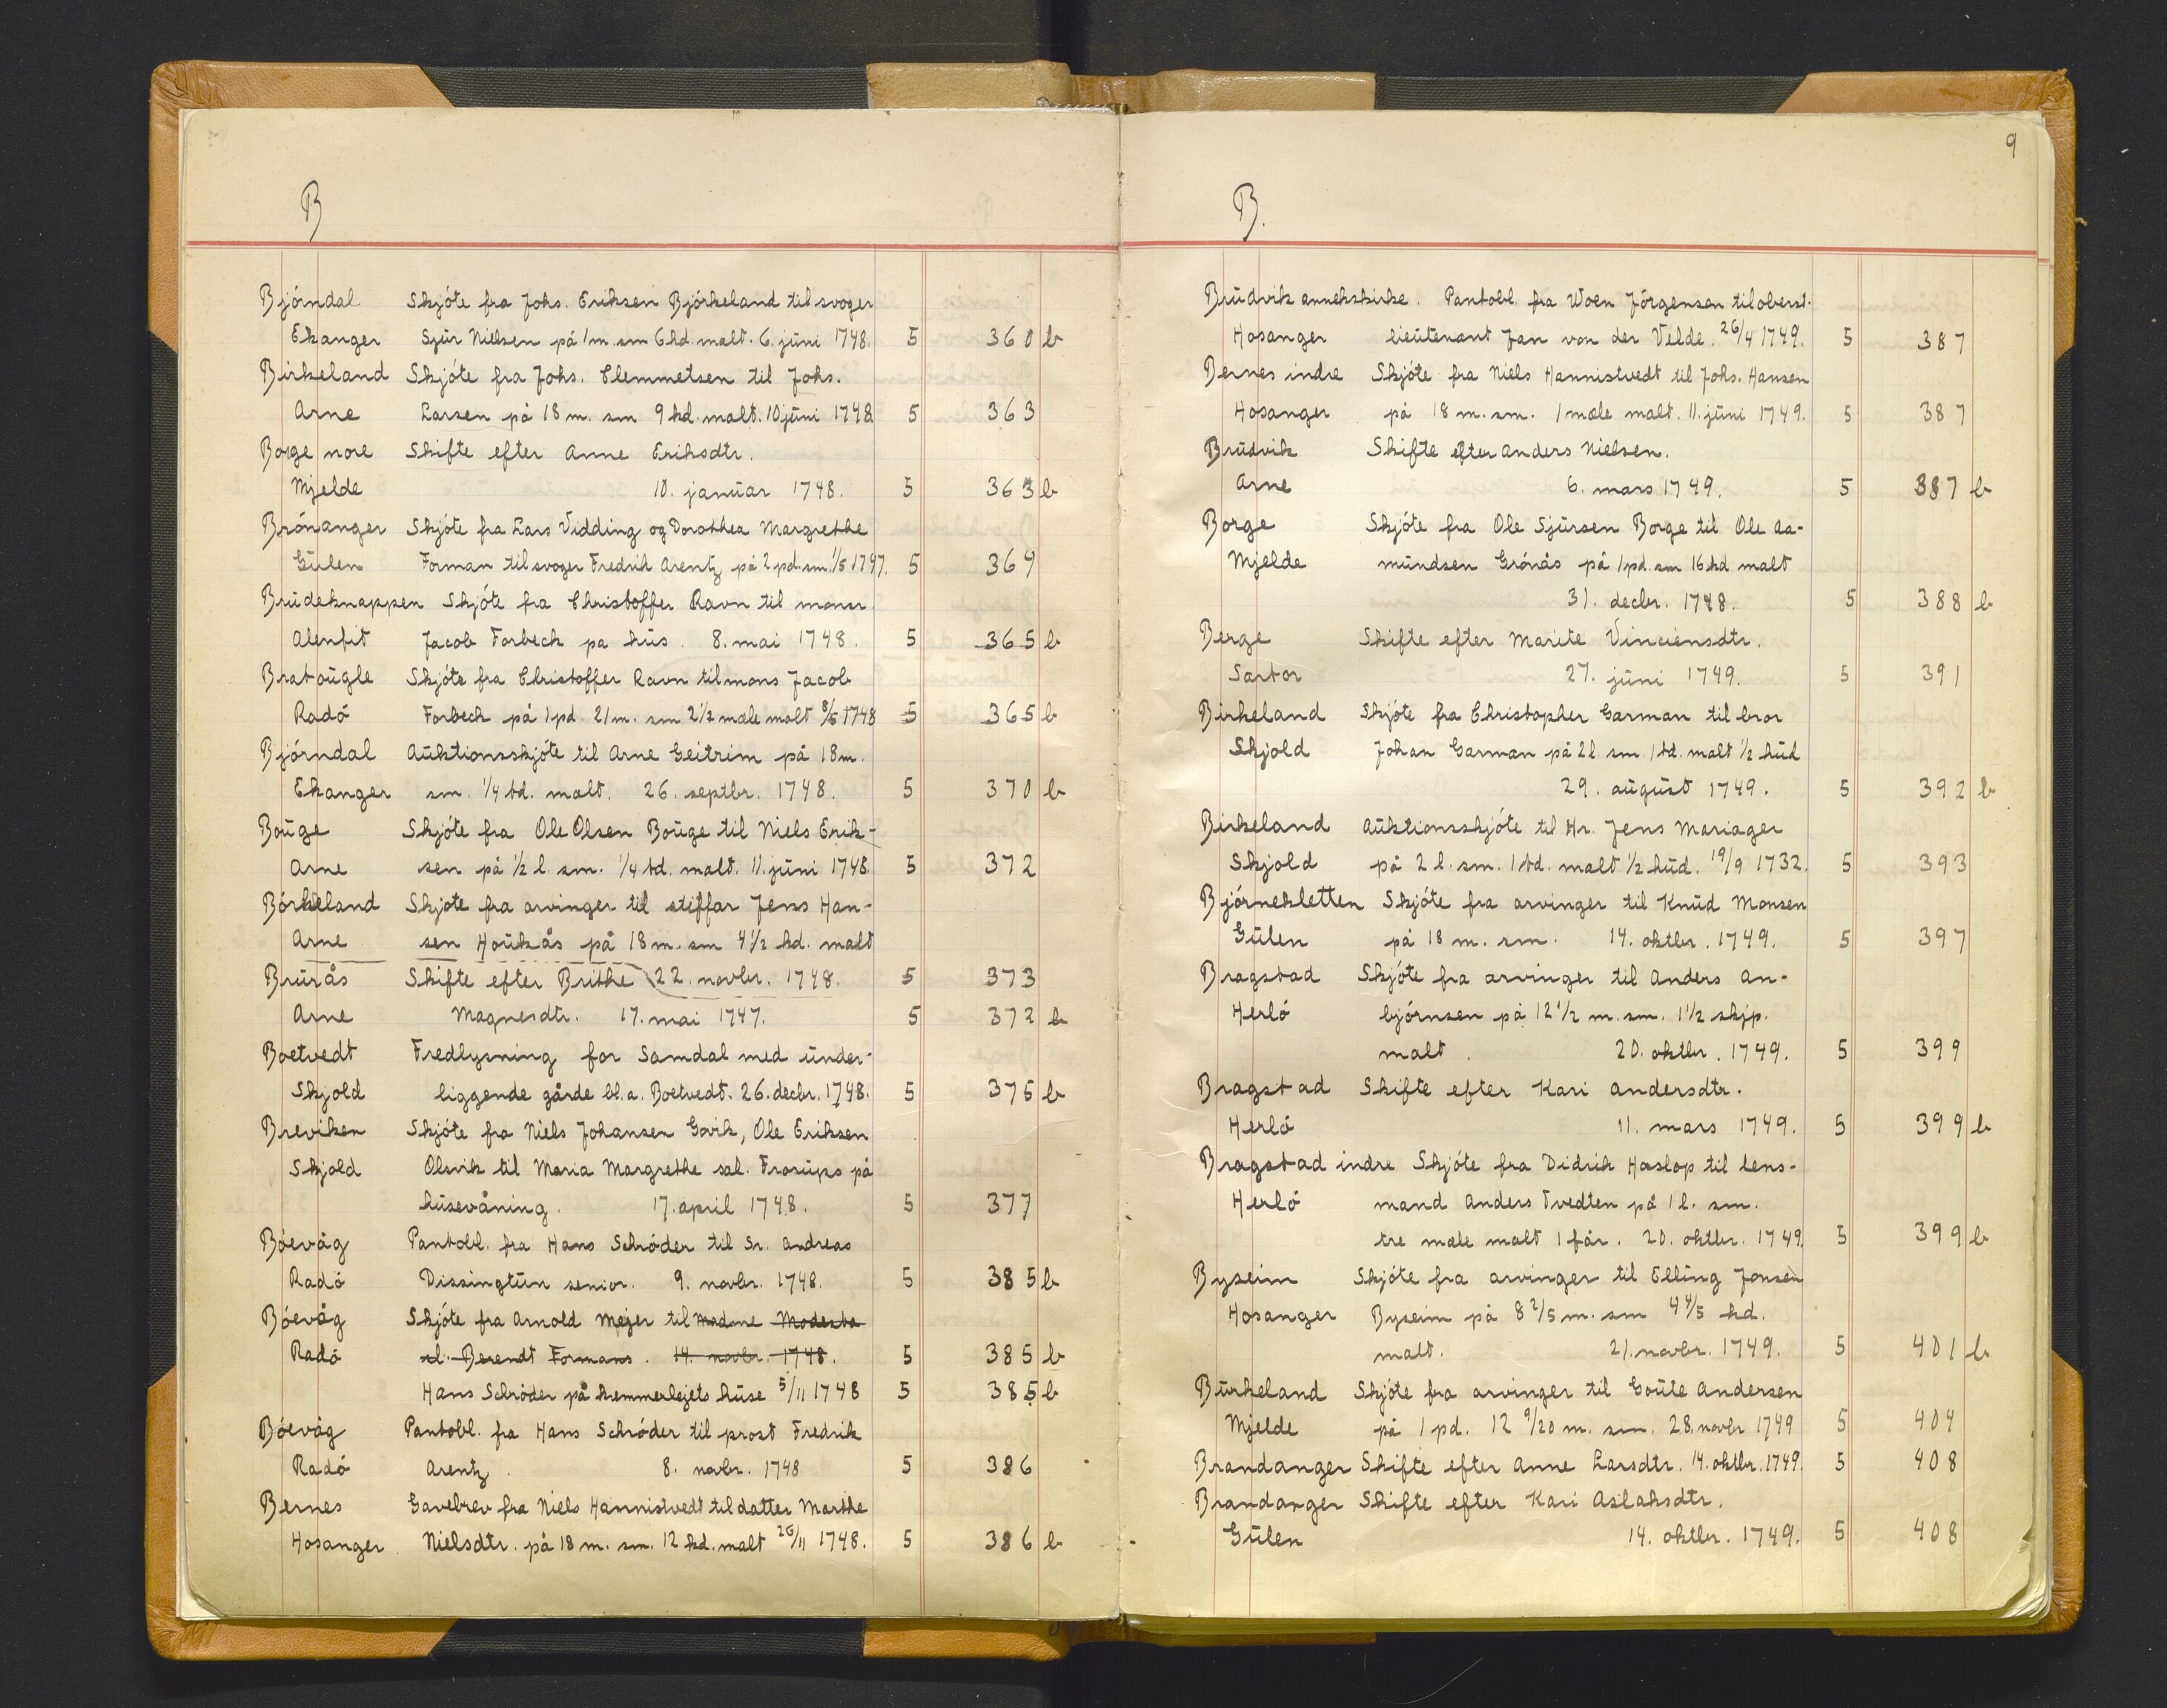 B
Bjórndal Skjóte fra Johs. Eriksen Bjórkeland til svoger
Ekanger Sjur Nielsen på 1 m. sm 6 kd. malt. 6. juni 1748. 5 360 b
Birkeland Skjóte fra Johs. Clemmetsen til Johs.
Arne Larsen på 18 m. sm 9 kd. malt. 10 juni 1748 5 363
Borge nore Skifte efter Anne Eriksdtr.
Mjelde 10. januar 1748. 5 363 b
Brónanger Skjóte fra Lars Vidding og Dorothea Margrethe
Gulen Forman til svoger Fredrik Arentz på 2 pd. sm. 1/5 1747. 5 364
Brudeknappen Skjóte fra Christoffer Ravn til monsr.
Alenfit Jacob Forbech pa hus. 8. mai 1748. 5 365 b
Bratougle Skjóte fra Christoffer Ravn til mons Jacob
Radó Forbech på 1 pd. 21 m. sm 2 1/2 mæle malt 8/5 1748 5 365 b
Bjórndal Auktionsskjóte til Arne Geitrim på 18 m.
Ekanger sm. 1/4 td. malt. 26. septbr. 1748. 5 370 b
Bouge Skjóte fra Ole Olsen Bouge til Niels Erik-
Arne sen på 1/2 l. sm. 1/4 td. malt. 11. juni 1748. 5 372
Bórkeland Skjote fra arvinger til stiffar Jens Han-
Arne sen Houkås på 18 m. sm 4 1/2 kd. malt
Brurås Skifte efter Brithe 22. novbr. 1748. 5 373
Arne Magnesdtr. 17. mai 1747. 5 372 b
Boetvedt Fredlysning for Samdal med under-
Skjold liggende gårde bl. a. Boetvedt. 26. decbr. 1748. 5 376 b
Breviken Skjóte fra Niels Johansen Govik, Ole Eriksen
Skjold Olsvik til Maria Margrethe sal. Frorups på
husevåning. 17. april 1748. 5 377
Bóevåg Pantobl. fra Hans Schróder til Sr. Andreas
Radó Dissingtun senior. 9. novbr. 1748. 5 385 b
Bóevåg Skjóte fra Arnold Mejer til Madme Moderba
Radó sl. Berendt Formans. 14. novbr. 1748. 5 385 b
Hans Schróder på kremmerlejets huse 5/11 1748 5 385 b
Bóevåg Pantobl. fra Hans Schróder til prost Fredrik
Radó Arentz. 8. novbr. 1748 5 386
Bernes Gavebrev fra Niels Hannistvedt til datter Marthe
Hosanger Nielsdtr. på 18 m. sm. 12 kd. malt 26/11 1748. 5 386 b
9
B.
Brudvik annekskirke. Pantobl. fra Woen Jórgensen til oberst-
Hosanger lieutenant Jan von der Velde. 26/4 1749. 5 387
Bernes indre Skjóte fra Niels Hannistvedt til Johs. Hansen
Hosanger på 18 m. sm. 1 mæle malt. 11. juni 1749. 5 387
Brudvik Skifte efter Anders Nielsen.
Arne 6. mars 1749. 5 387 b
Borge Skjóte fra Ole Sjursen Borge til Ole Aa-
Mjelde mundsen Grónås på 1 pd. sm 16 kd malt
31. decbr. 1748. 5 388 b
Berge Skifte efter Marite Vinciensdtr.
Sartor 27. juni 1749. 5 391
Birkeland Skjóte fra Christopher Garman til bror
Skjold Johan Garman på 2 l. sm. 1 td. malt 1/2 hud
29. august 1749. 5 392 b
Birkeland Auktionsskjóte til Hr. Jens Mariager
Skjold på 2 l. sm. 1 td. malt 1/2 hud. 19/9 1732. 5 393
Bjórnekletten Skjóte fra arvinger til Knud Monsen
Gulen på 18 m. sm. 14. oktbr. 1749. 5 397
Bragstad Skjóte fra arvinger til Anders An-
Herló bjórnsen på 12 1/2 m. sm. 1 1/2 skjp.
malt. 20. oktbr. 1749. 5 399
Bragstad Skifte efter Kari Andersdtr.
Herló 11. mars 1749. 5 399 b
Bragstad indre Skjóte fra Didrik Haslop til lens-
Herló mand Anders Tvedten på 1 l. sm.
tre mæle malt 1 får. 20. oktbr. 1749. 5 399 b
Byseim Skjóte fra arvinger til Elling Jonsen
Hosanger Byseim på 8 2/5 m. sm 4 4/5 kd.
malt. 21. novbr. 1749. 5 401 b
Burkeland Skjóte fra arvinger til Goute Andersen
Mjelde på 1 pd. 12 9/20 m. sm. 28. novbr 1749 5 404
Brandanger Skifte efter Anne Larsdtr. 14. oktbr. 1749. 5 408
Brandanger Skifte efter Kari Aslaksdtr.
Gulen 14. oktbr. 1749. 5 408